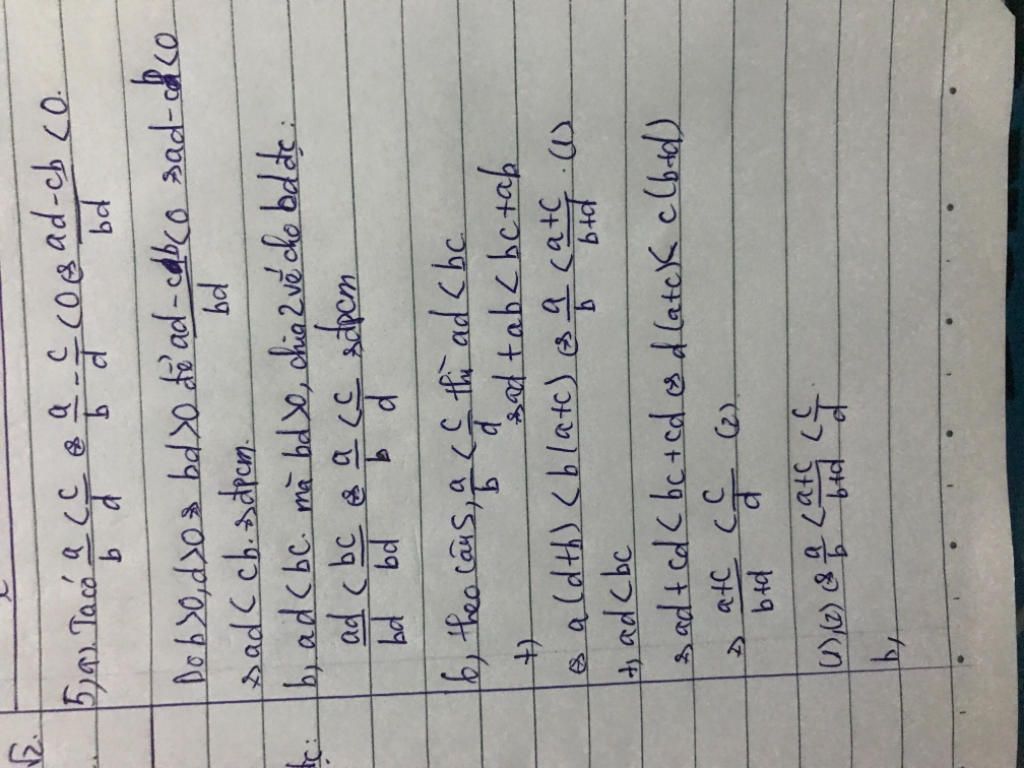 √2.
5, a) Ta có a/b < c/d ⇔ a/b - c/d < 0 ⇔ (ad-cb)/bd < 0.
Do b>0, d>0 ⇒ bd>0 để (ad-cb)/bd < 0 ⇒ ad-cb < 0
⇒ ad < cb. ⇒ đpcm.
b, ad < bc. mà bd>0, chia 2 vế cho bd đc:
đc:
ad/bd < bc/bd ⇔ a/b < c/d ⇒ đpcm
6, theo câu 5, a/b < c/d thì ad < bc
+) ⇒ ad + ab < bc + ab
⇔ a(d+b) < b(a+c) ⇔ a/b < (a+c)/(b+d). (1)
+, ad < bc
⇒ ad + cd < bc + cd ⇔ d(a+c) < c(b+d)
⇒ (a+c)/(b+d) < c/d (2)
(1), (2) ⇔ a/b < (a+c)/(b+d) < c/d.
b,